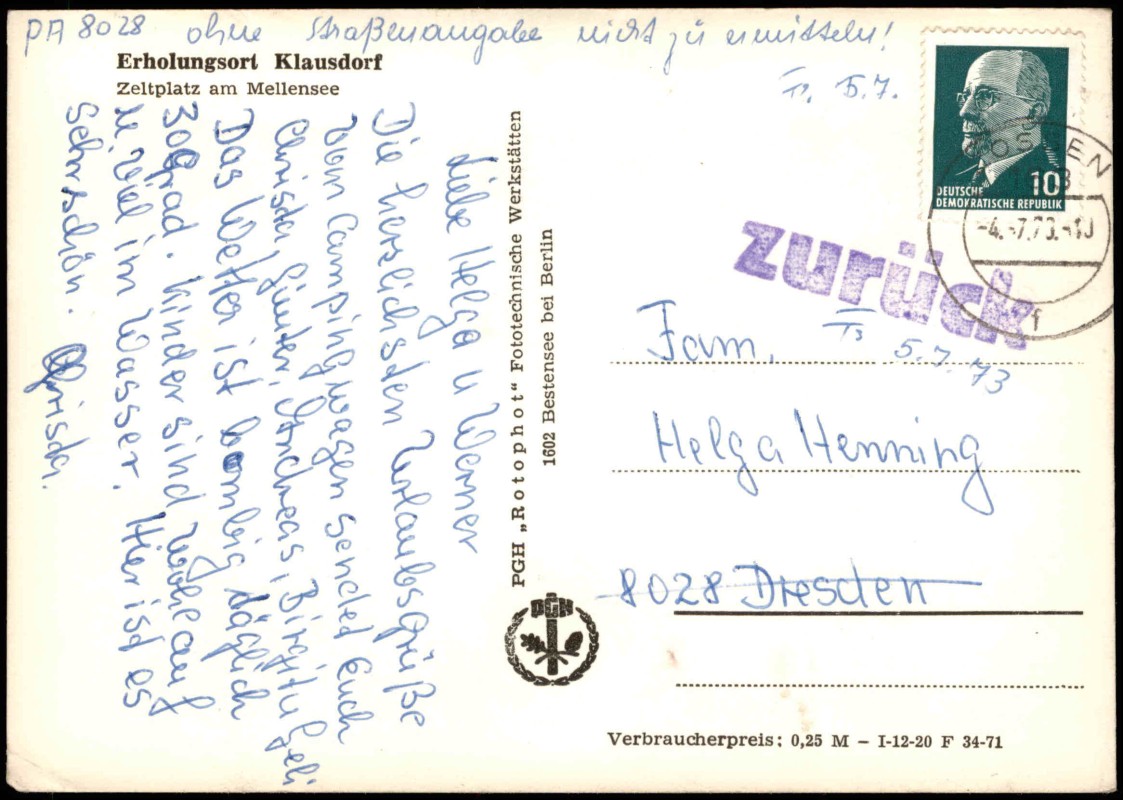 PA 8028 ohne Straßenangabe nicht zu ermitteln!
Erholungsort Klausdorf
Zeltplatz am Mellensee
5.7.
DEUTSCHE
DEMOKRATISCHE REPUBLIK
10
-4.-7.73.-10
f
zurück
Liebe Helga u Werner
Die herzlichsten Urlaubsgrüße
vom Campingwagen sendet Euch
Christa, Günter, Andreas, Birgit u
Das Wetter ist bombig täglich
30Grad. Kinder sind
u. viel im Wasser. Hier ist es
Sehr schön. Christa.
PGH „Rotophot“ Fotot​echnische Werkstätten
1602 Bestensee bei Berlin
PGH
5.7.73
Fam.
Helga Henning
8028 Dresden
Verbraucherpreis: 0,25 M – I-12-20 F 34-71